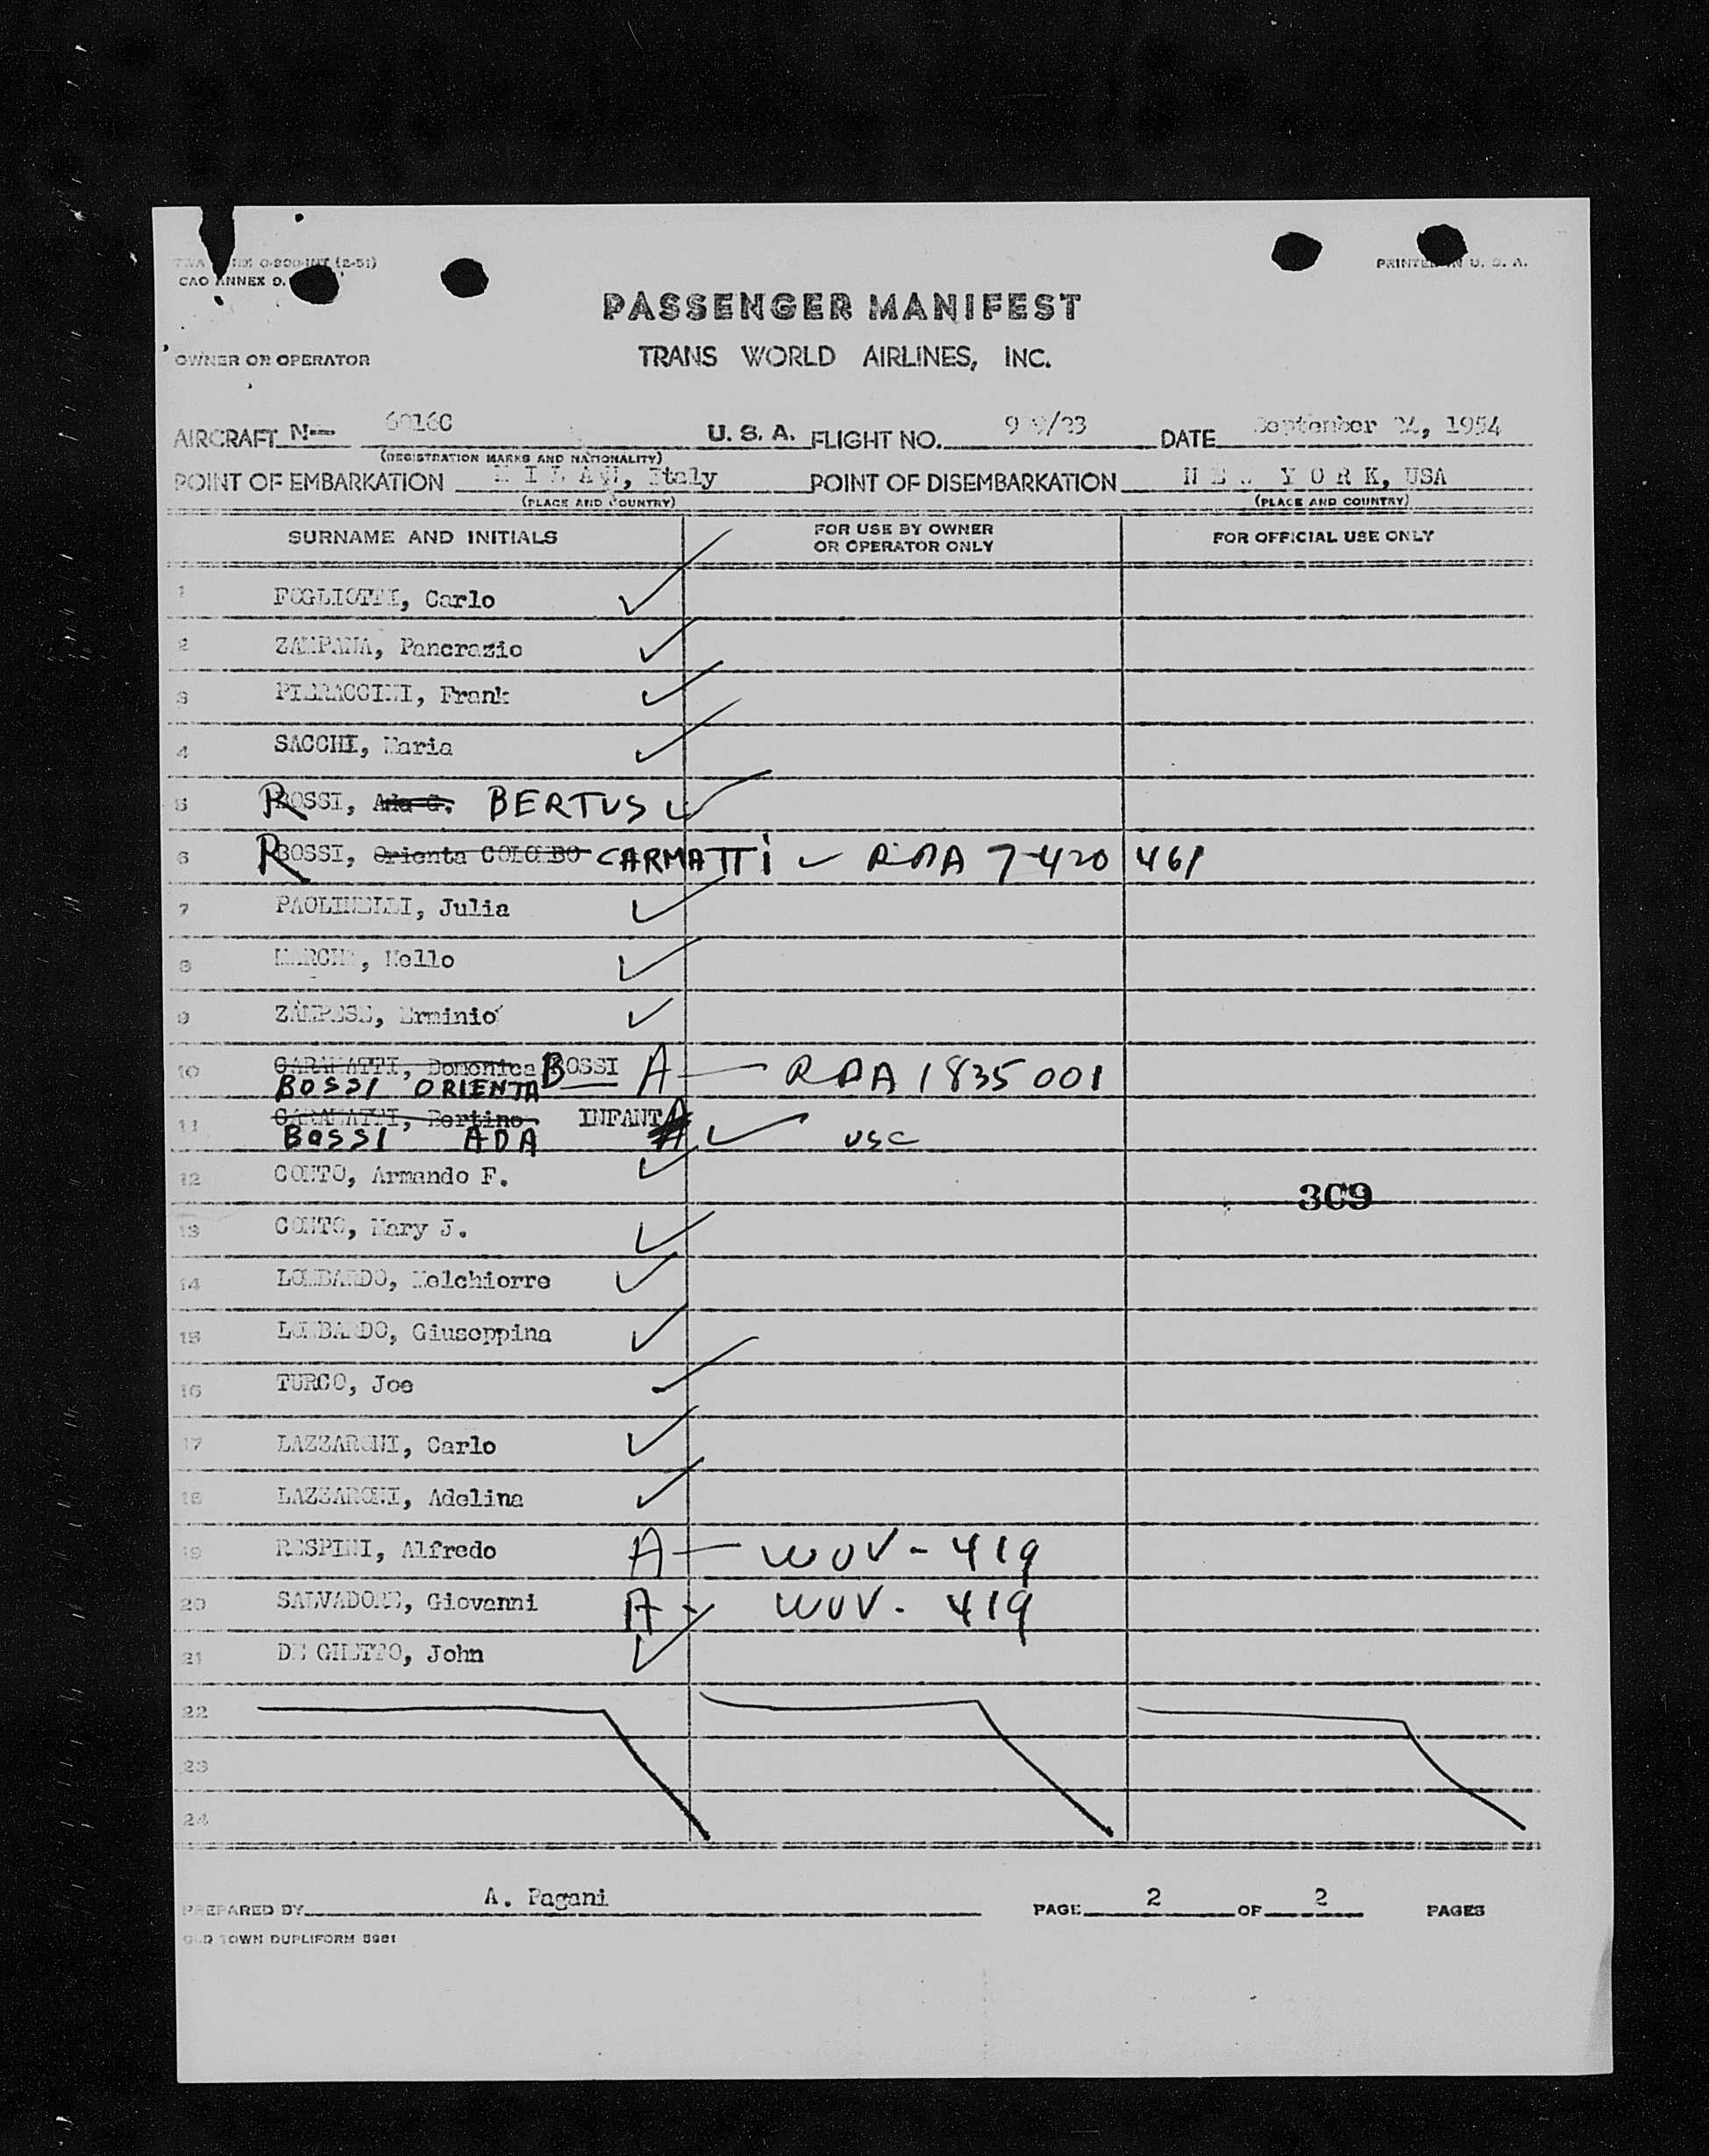 CAO ANNEX 9.
PRINTED IN U. S. A.
PASSENGER MANIFEST
OWNER OR OPERATOR TRANS WORLD AIRLINES, INC.
AIRCRAFT N- 6016C U. S. A. FLIGHT NO. DATE September 24, 1954
(REGISTRATION MARKS AND NATIONALITY)
POINT OF EMBARKATION M I L A N, Italy POINT OF DISEMBARKATION N E W Y O R K, USA
(PLACE AND COUNTRY) (PLACE AND COUNTRY)
SURNAME AND INITIALS FOR USE BY OWNER OR OPERATOR ONLY FOR OFFICIAL USE ONLY
1 FOGLIOTTI, Carlo
2 ZAMPANA, Pancrazio
3 PIERACCINI, Frank
4 SACCHI, Maria
5 ROSSI, Ada G. BERTUS
6 ROSSI, Orienta COLOMBO CARMATTI RDA 7-420 461
7 PAOLINELLI, Julia
8 Nello
9 ZAMPESE, Erminio
10 CARAMATTI, Domenica BOSSI A RDA 1835001
BOSSI ORIENTA
11 CARAMATTI, Bertino INFANT A
BOSSI ADA USC
12 CONTO, Armando F.
309
13 CONTO, Mary J.
14 LOMBARDO, Melchiorre
15 LOMBARDO, Giuseppina
16 TURCO, Joe
17 LAZZARONI, Carlo
18 LAZZARONI, Adelina
19 RESPINI, Alfredo A WUV - 419
20 SALVADORE, Giovanni A - WUV - 419
21 DE GHETTO, John
22
23
24
PREPARED BY A. Pagani PAGE 2 OF 2 PAGES
OLD TOWN DUPLIFORM 5981